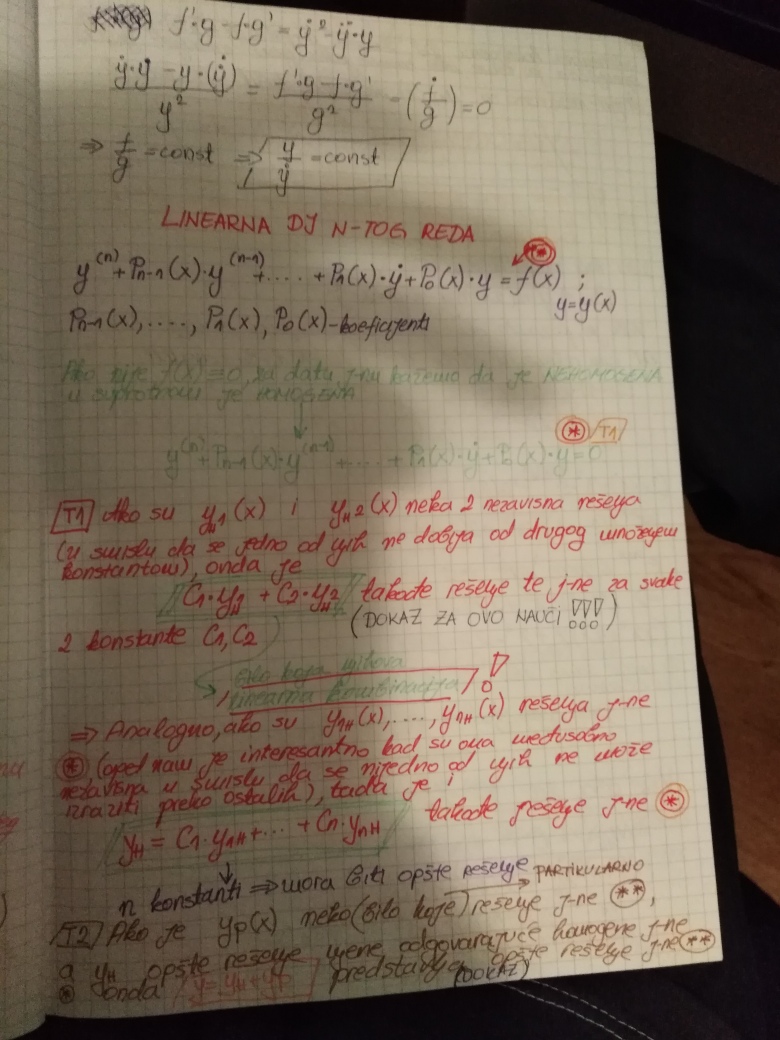 f'·g - f·g' = ẏ² - ÿ·y
ẏ·ẏ - y·(ÿ) / y² = f'·g - f·g' / g² - (f/g) = 0
⇒ f/g = const ⇒ y/ẏ = const
LINEARNA DJ N-TOG REDA
y⁽ⁿ⁾ + Pn-1(x)·y⁽ⁿ⁻¹⁾ + .... + P1(x)·ẏ + P0(x)·y = f(x) ; **
y=y(x)
Pn-1(x), ...., P1(x), P0(x) - koeficijenti
Ako nije f(x) ≡ 0, za datu j-nu kažemo da je NEHOMOGENA
u suprotnom je HOMOGENA
* T1
y⁽ⁿ⁾ + Pn-1(x)·y⁽ⁿ⁻¹⁾ + .... + P1(x)·ẏ + P0(x)·y = 0
T1 Ako su yH1(x) i yH2(x) neka 2 nezavisna rešenja
(u smislu da se jedno od njih ne dobija od drugog množenjem
konstantom), onda je
C1·yH1 + C2·yH2 takođe rešenje te j-ne za svake
2 konstante C1, C2 (DOKAZ ZA OVO NAUČI !!!)
Bilo koja njihova
linearna kombinacija !
⇒ Analogno, ako su y1H(x), ...., ynH(x) rešenja j-ne
* (opet nam je interesantno kad su ona međusobno
nezavisna u smislu da se nijedno od njih ne može
izraziti preko ostalih), tada je i
yH = C1·y1H + ... + Cn·ynH takođe rešenje j-ne *
n konstanti ⇒ mora biti opšte rešenje PARTIKULARNO
T2 Ako je yp(x) neko (bilo koje) rešenje j-ne **,
a yH opšte rešenje njene odgovarajuće homogene j-ne
* onda y = yH + yp predstavlja opšte rešenje j-ne **
(DOKAZ)